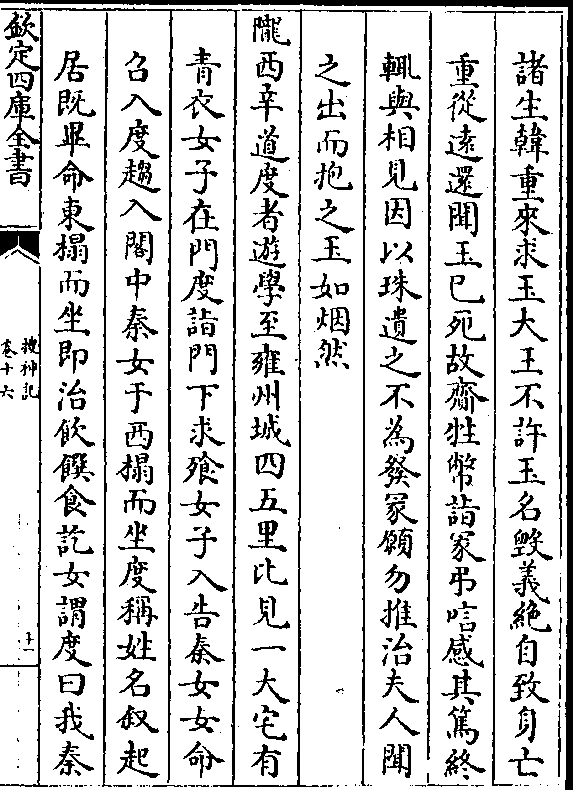 諸生韓重來求玉大王不許玉名毀義絶自致身亡
重從逺還聞玉已死故齎牲幣詣冢弔唁感其篤終
輒與相見因以珠遺之不為發冢願勿推治夫人聞
之出而抱之玉如烟然
隴西辛道度者遊學至雍州城四五里比見一大宅有
青衣女子在門度詣門下求飱女子入告秦女女命
召入度趨入閤中秦女于西榻而坐度稱姓名叙起
居既畢命東榻而坐即治飲饌食訖女謂度曰我秦
欽定四庫全書
搜神記
卷十六
十一